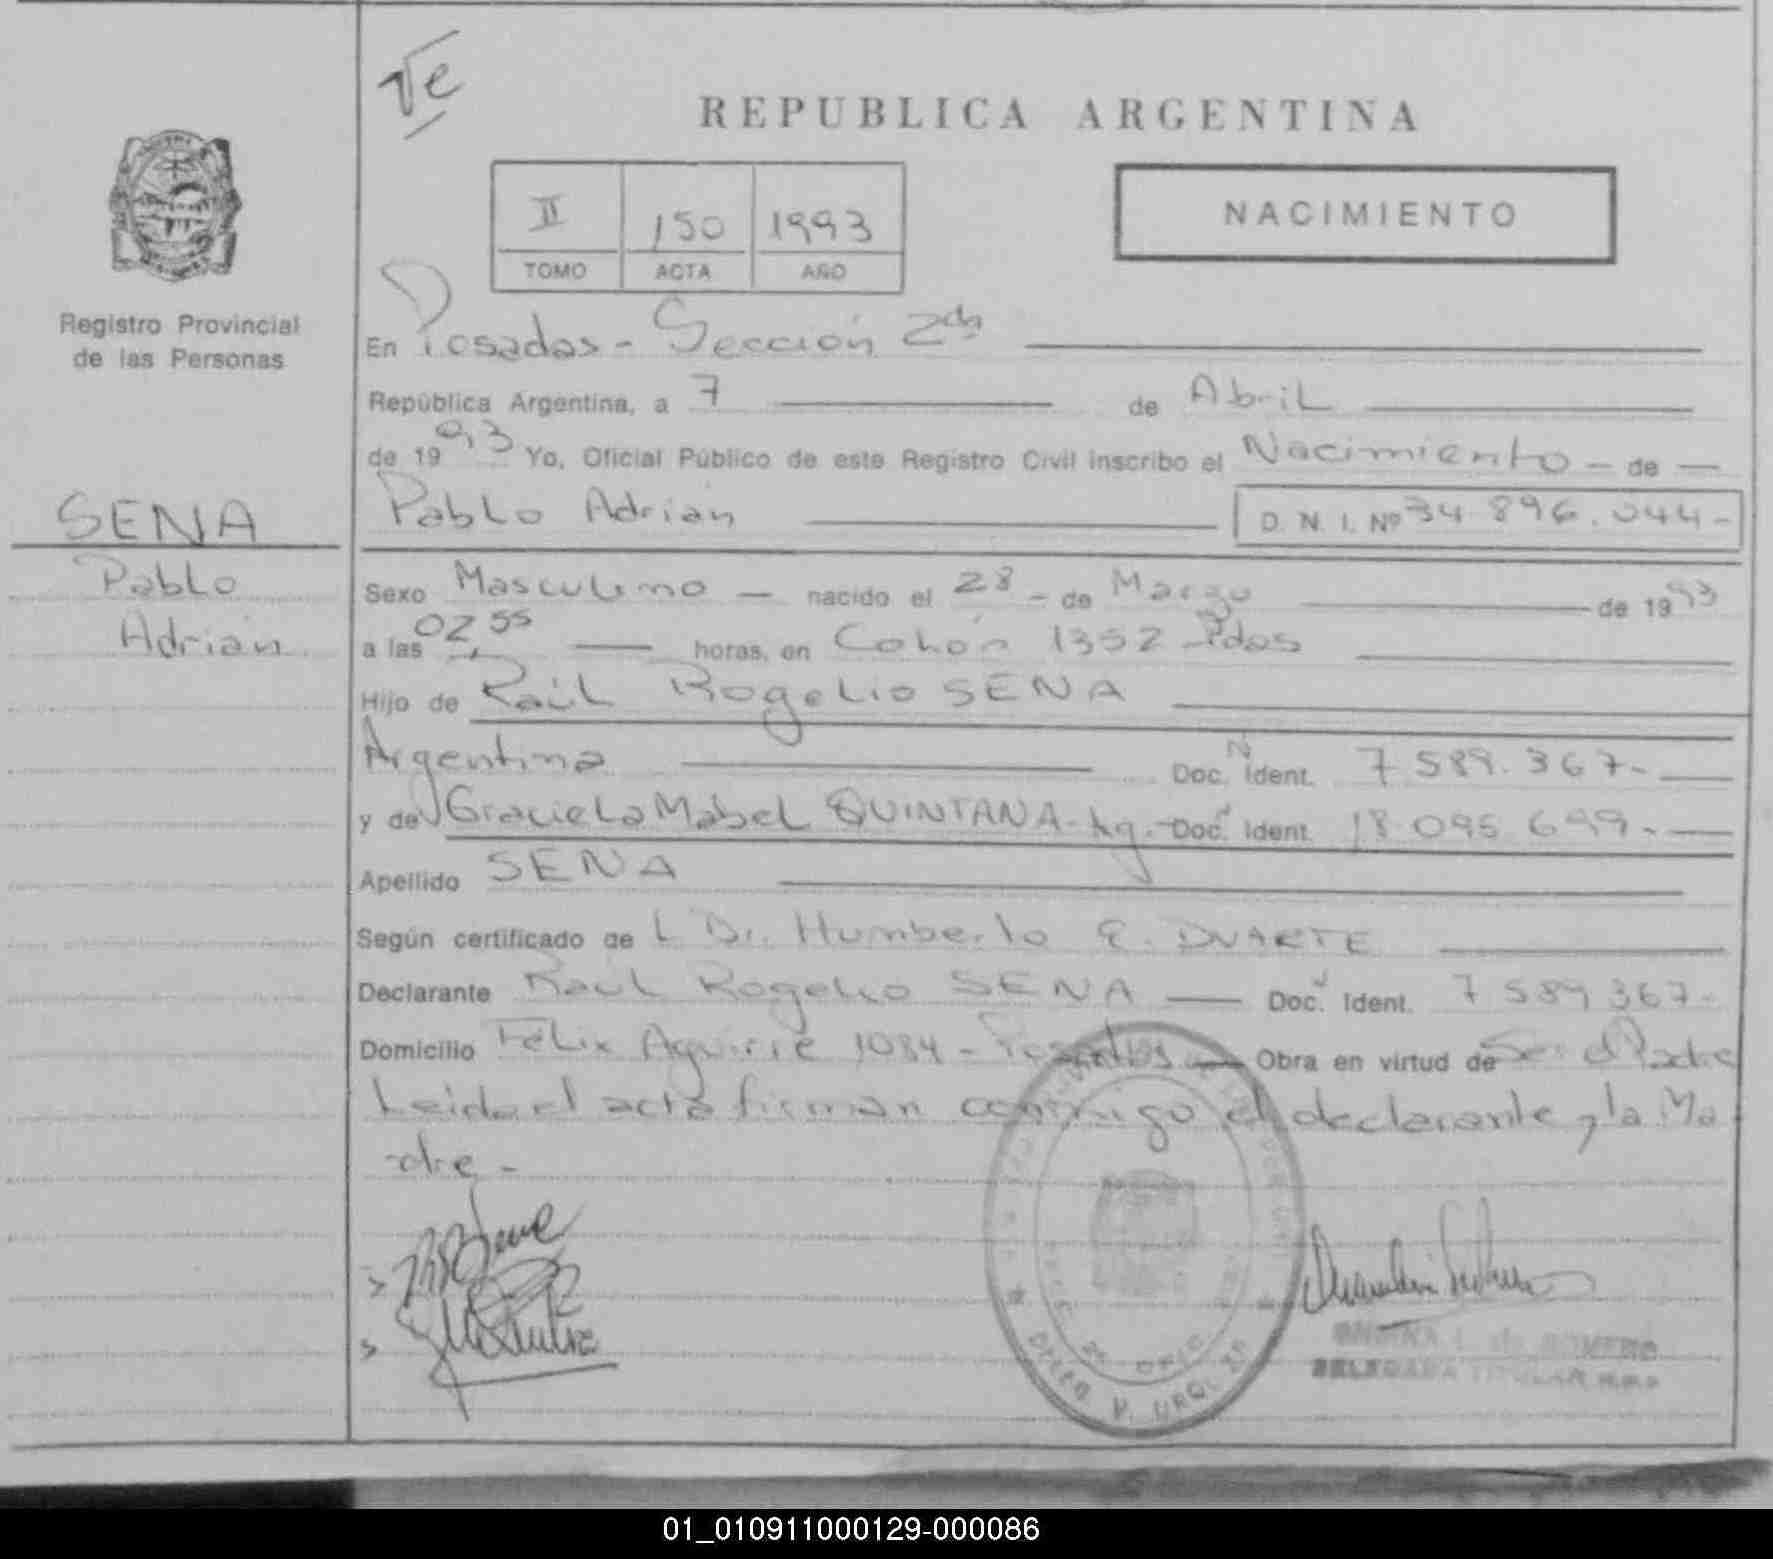 REPUBLICA ARGENTINA
II 150 1993
TOMO ACTA AÑO
NACIMIENTO
Registro Provincial
de las Personas
SENA
Pablo
Adrián
En Posadas - Sección 2da
República Argentina, a 7 de Abril
de 1993 Yo, Oficial Público de este Registro Civil inscribo el Nacimiento - de -
Pablo Adrián D. N. I. Nº 34.896.044-
Sexo Masculino - nacido el 28 - de Marzo de 1993
a las 02,55 horas, en Colón 1352 - Pdas
Hijo de Raúl Rogelio SENA
Argentina Doc. Ident. 7.589.367.-
y de Graciela Mabel QUINTANA - Arg. - Doc. Ident. 18.095.699.-
Apellido SENA
Según certificado de L Dr. Humberto E. DUARTE
Declarante Raúl Rogelio SENA Doc. Ident. 7.589.367-
Domicilio Félix Aguirre 1084 - Posadas Obra en virtud de Ser el Padre
Leida el acta firman conmigo el declarante y la Ma
dre -
DE ROMERO
DELEGADA TITULAR R.P.P.
01_010911000129-000086